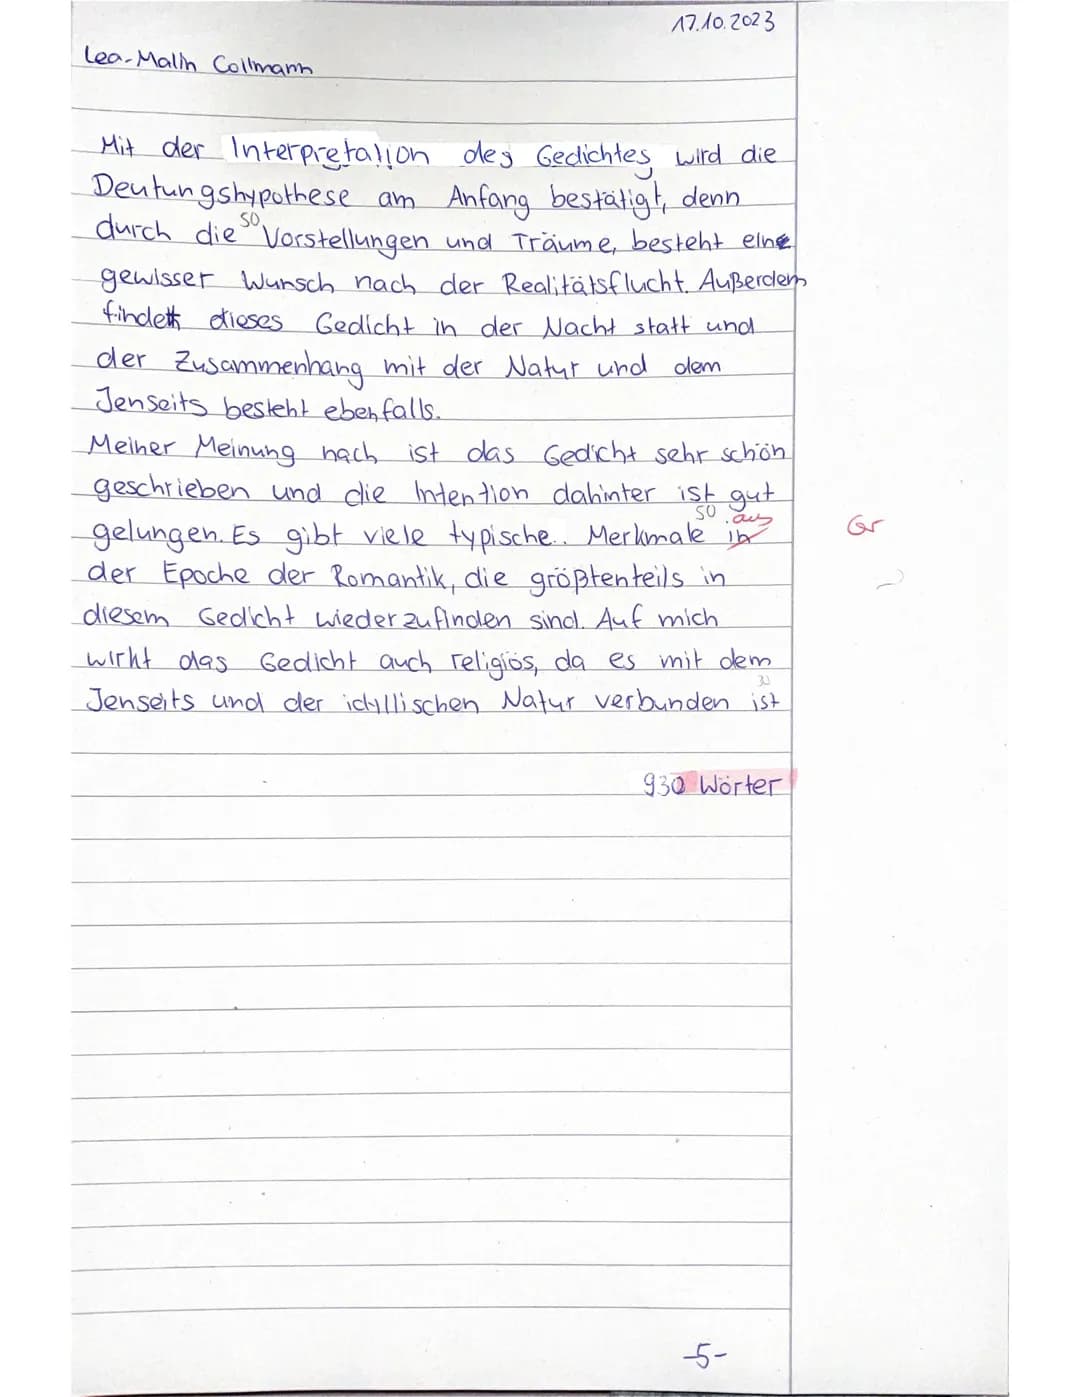 17.10.2023
Lea-Malin Collmann
Mit der Interpretation des Gedichtes wird die
Deutungshypothese am Anfang bestätigt, denn
50
durch die Vorstellungen und Träume, besteht eine
gewisser Wunsch nach der Realitätsflucht. Außerdem
findet dieses Gedicht in der Nacht statt und
der Zusammenhang mit der Natur und dem
Jenseits besteht ebenfalls.
Meiner Meinung nach ist das Gedicht sehr schön
geschrieben und die Intention dahinter ist gut
50 aus
gelungen. Es gibt viele typische Merkmale in Gr
der Epoche der Romantik, die größtenteils in
diesem Gedicht wiederzufinden sind. Auf mich
wirkt das Gedicht auch religiös, da es mit dem
30
Jenseits und der idyllischen Natur verbunden ist
930 Wörter
-5-